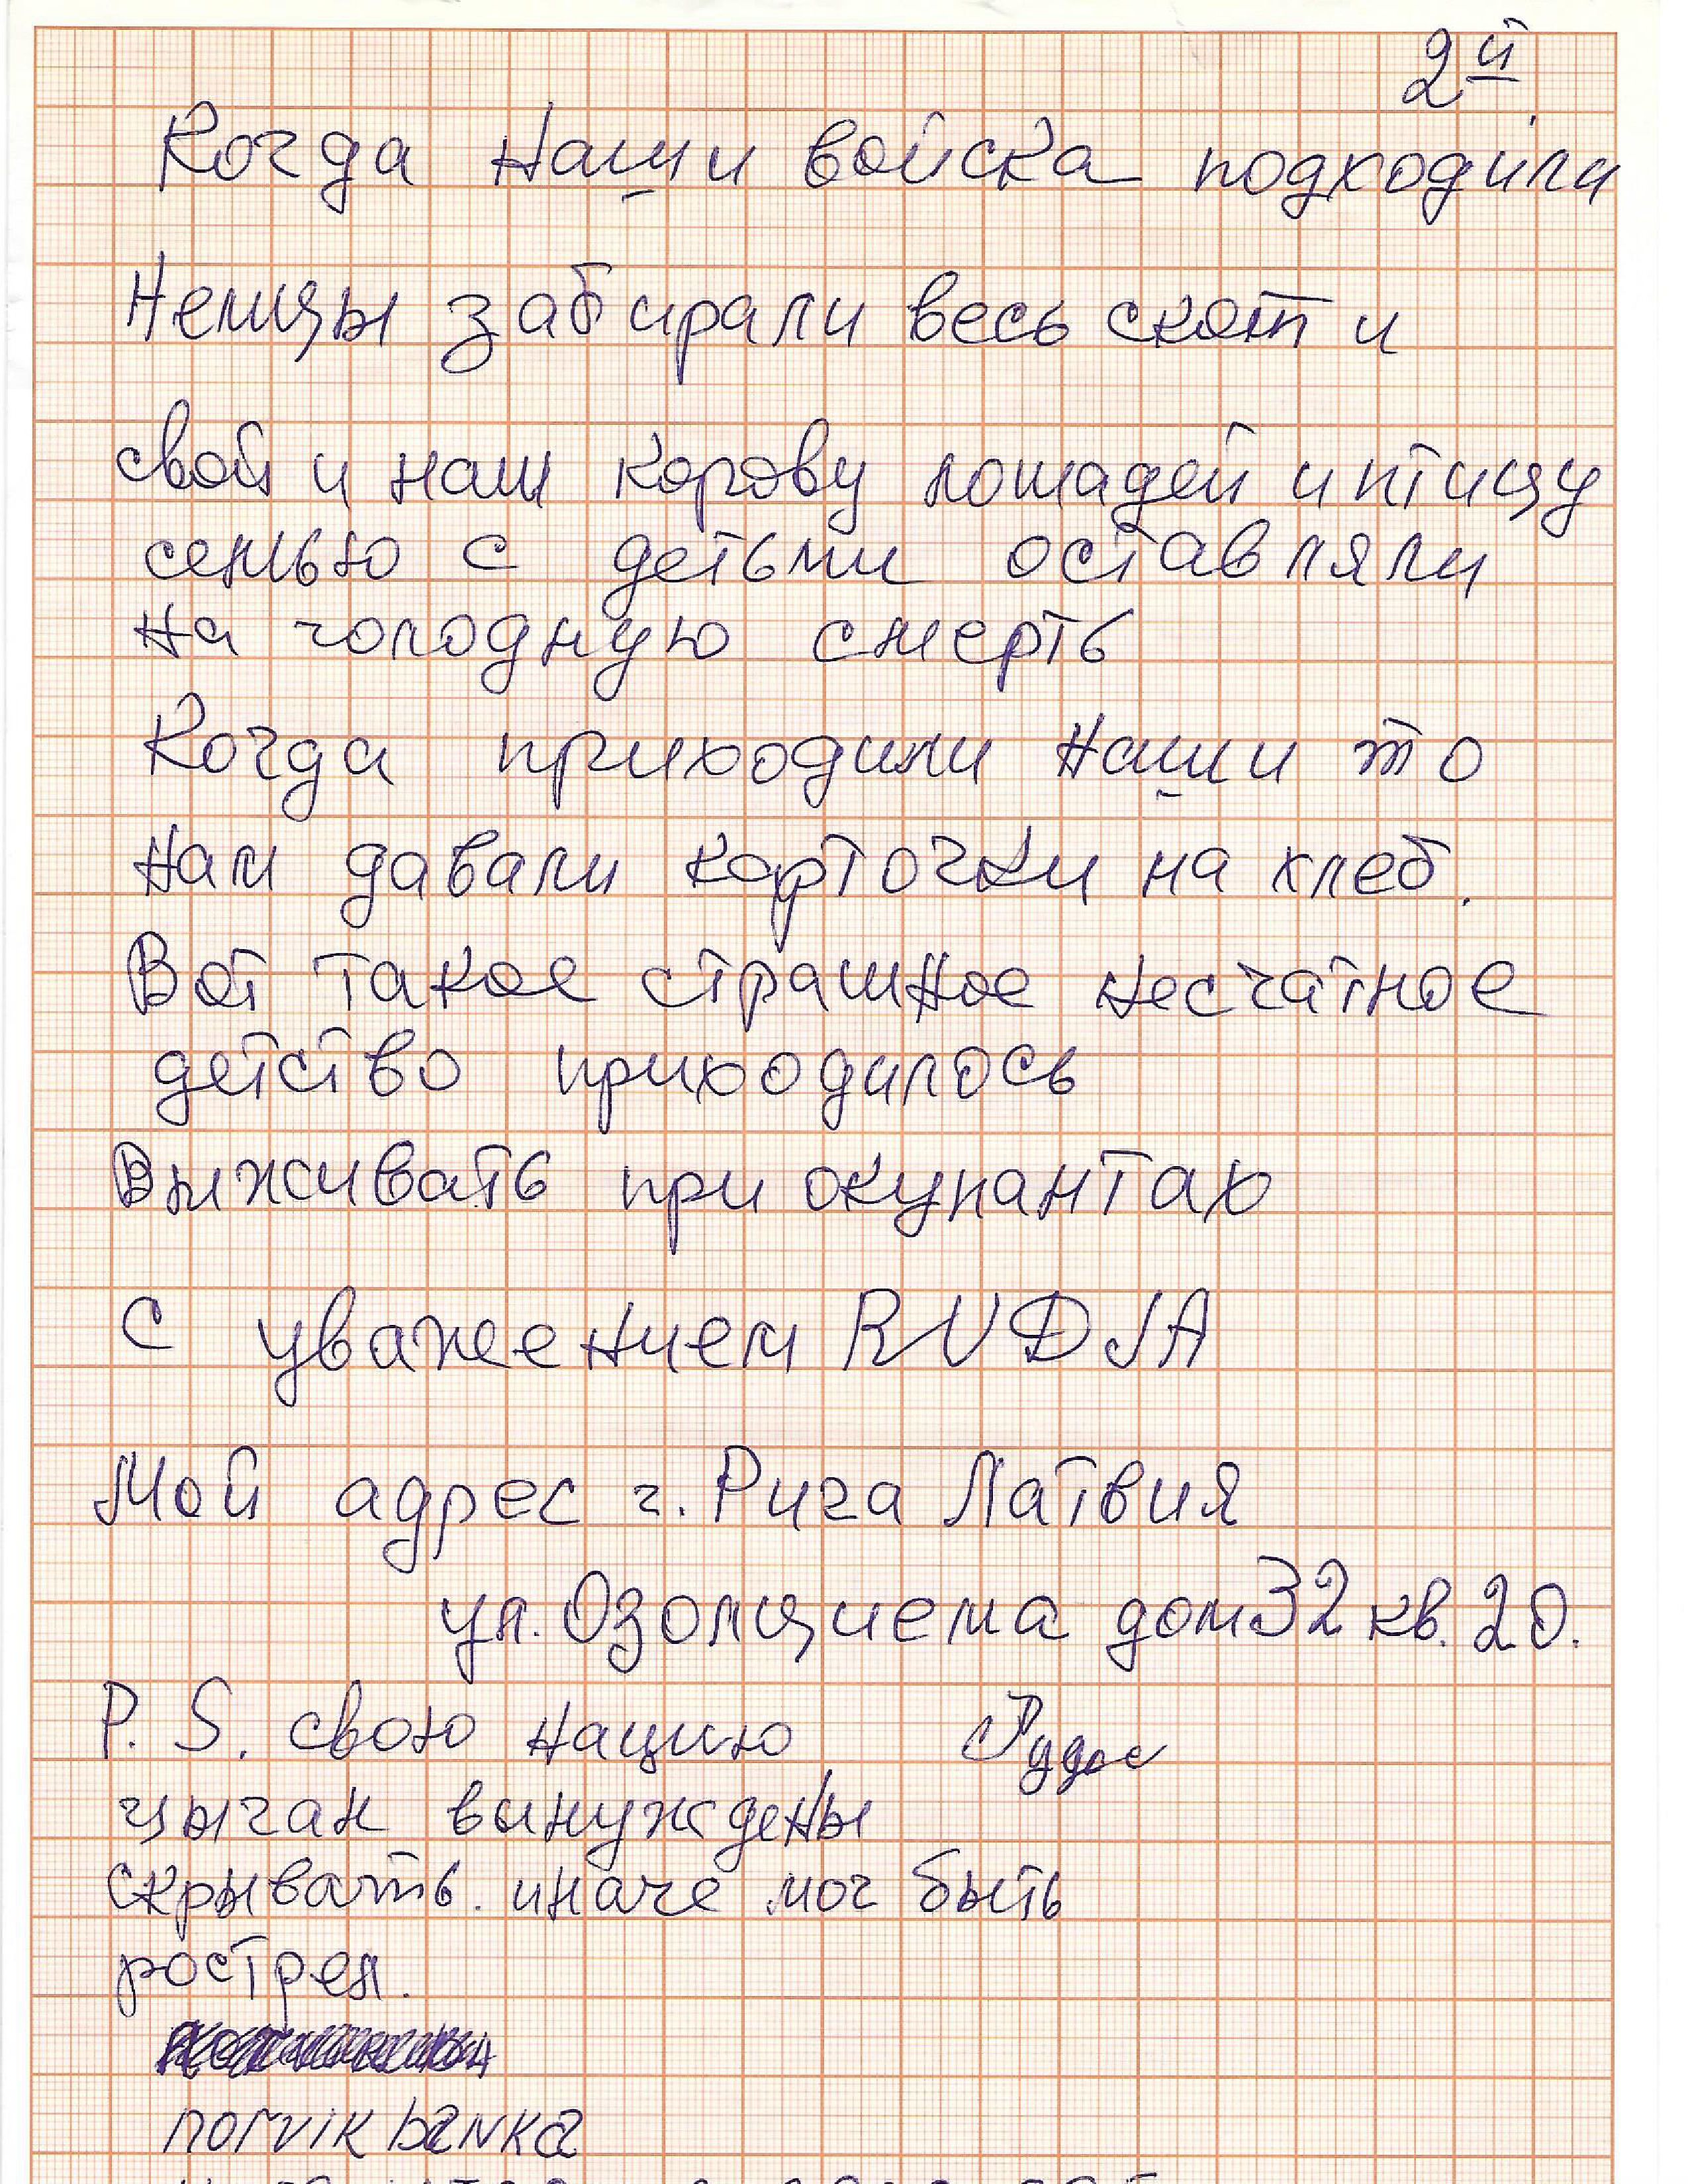 2й
Когда Наши войска подходили
Немцы забирали весь скот и
свой и наш корову лошадей и птицу
семью с детьми оставляли
на голодную смерть
Когда приходили Наши то
нам давали карточки на хлеб.
Вот такое страшное несчатное
детство приходилось
Выживать при окупантах
С уважеением RUDJA
Мой адрес г. Рига Латвия
ул. Озолциема дом 32 кв. 20.
P. S. свою нацию
цыган вынуждены
скрывать. иначе мог быть
рострел.
norvik banka